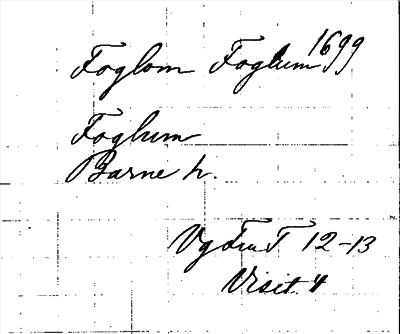 Foglom Foglum 1699
Foglum
Barne h.
Vg Fru T. 12-13
Visit. 4